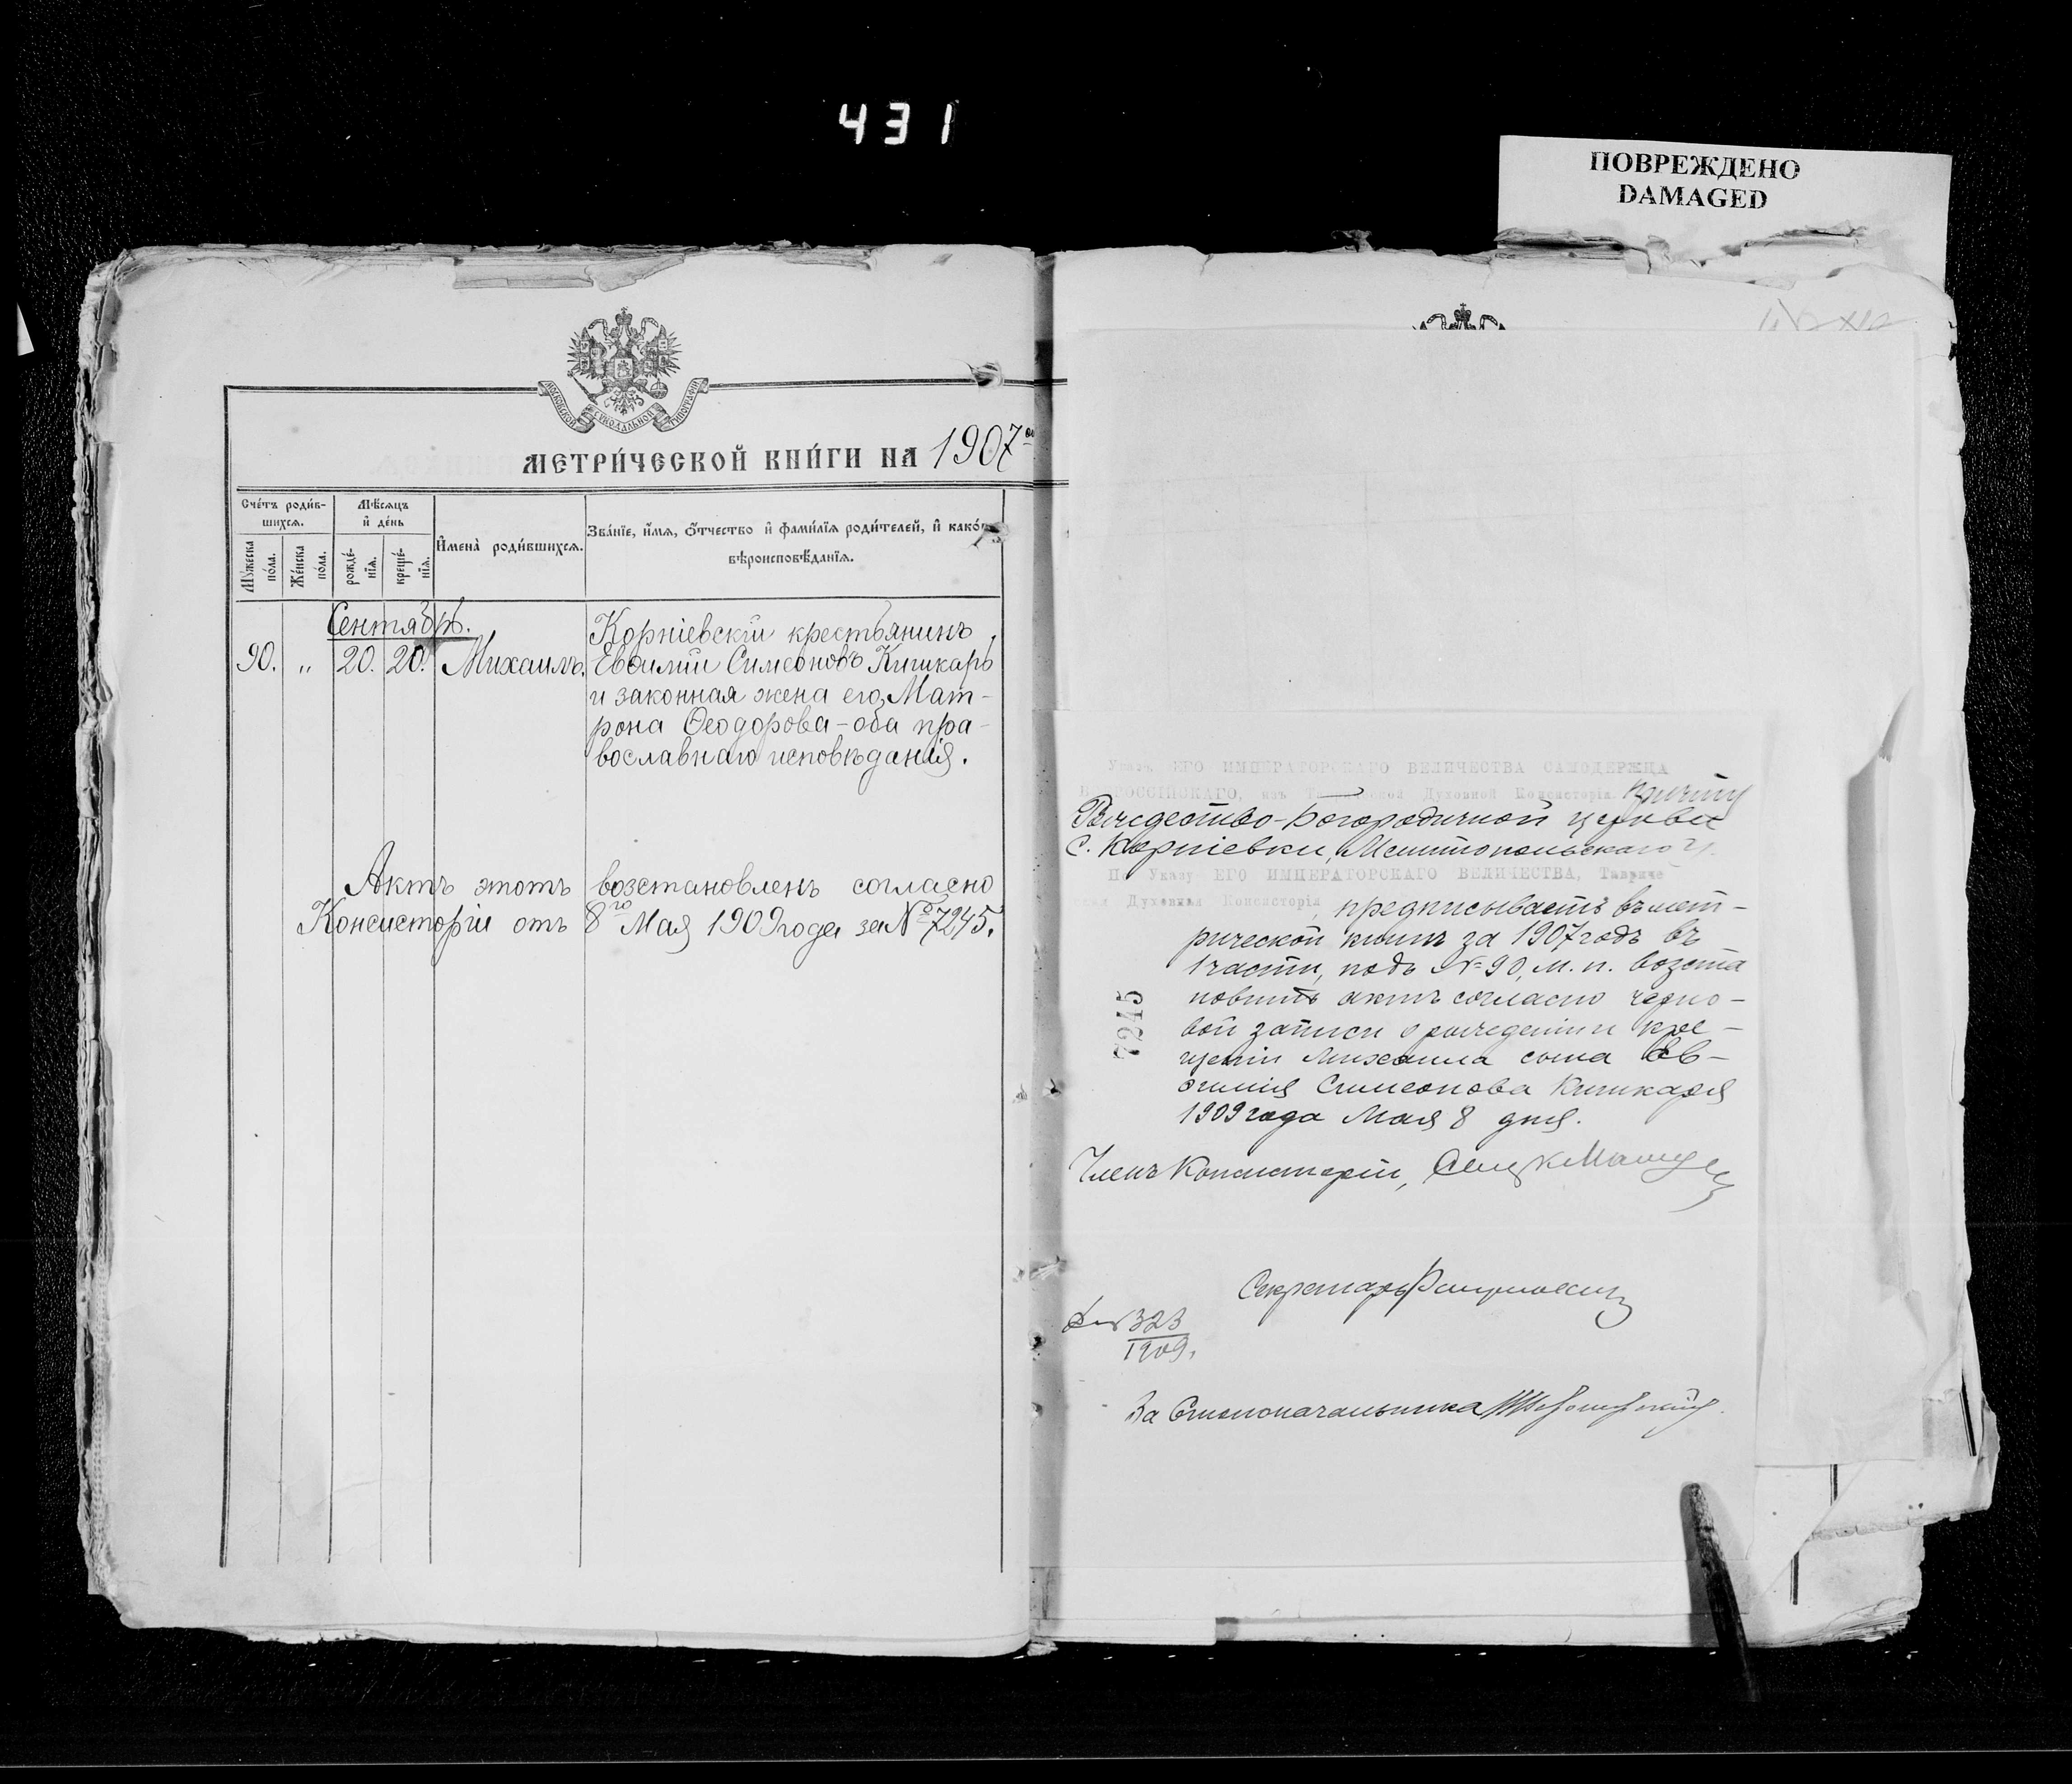 431
ПОВРЕЖДЕНО
DAMAGED
МОСКОВСКОЙ СУНОДАЛЬНОЙ ТИПОГРАФІИ
МЕТРИ́ЧЕСКОЙ КНИ́ГИ НА 1907
Сче́тъ роди́в-
шихсѧ.
Мѣ́сѧцъ
и҆ де́нь
И҆мена̀ роди́вшихсѧ.
Зва́нїе, и҆́мѧ, ѻ҆́тчество и҆ фами́лїѧ роди́телей, и҆ како́гѡ
вѣроисповѣ́данїѧ.
Мꙋ́жеска
по́ла.
Же́нска
по́ла.
рожде́-
нїѧ.
креще́-
нїѧ.
Сентябрь.
90. „ 20. 20. Михаилъ.
Корніевскій крестьянинъ
Евѳимій Симеоновъ Кишкарь
и законная жена его, Мат-
рона Ѳеодорова - оба пра-
вославнаго исповѣданія.
Актъ этотъ возстановленъ согласно
Консисторіи отъ 8го Мая 1909 года за № 7245.
Указъ ЕГО ИМПЕРАТОРСКАГО ВЕЛИЧЕСТВА САМОДЕРЖЦА
ВСЕРОССІЙСКАГО, изъ Таврической Духовной Консисторіи Причту
Рождество-Богородичной церкви
с. Корніевки, Мелитопольскаго у.
По Указу ЕГО ИМПЕРАТОРСКАГО ВЕЛИЧЕСТВА, Тавриче
ская Духовная Консисторія, предписываетъ въ мет-
рической книгѣ за 1907 годъ въ
1 части, подъ № 90, м. п. возста
новить актъ согласно черно-
вой записи о рожденіи и кре-
щеніи Михаила сына Ев-
ѳимія Симеонова Кишкаря
1909 года Мая 8 дня.
7245
Членъ Консисторіи,
Секретарь
323
1909.
За Столоначальника